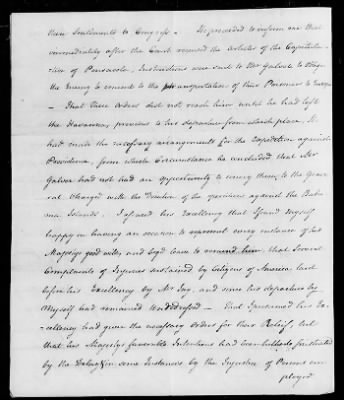 their Sentiments to Congress - He proceeded to inform me that
immediately after the Court received the Articles of the Capitula-
tion of Pensacola, Instructions were sent to Mr Galvez to
the Enemy to consent to the transportation of their Prisoners to Europe
- That these orders did not reach him until he had left
the Havannah, previous to his departure from which place, He
had made the necessary arrangements for the expedition against
Providence, from which Circumstance he concluded that Mr
Galvez had not had an opportunity to convey them to the Gene-
ral charged with the Direction of the operations against the Baha-
ma Islands. I assured his Excellency that I found myself
happy in having an occasion to represent every instance of his
Majestys good will, and begd leave to remind him that several
Complaints of Injuries sustained by Citizens of America laid
before his Excellency by Mr Jay, and since his departure by
Myself had remained unaddressed - That I presumed his Ex-
cellency had given the necessary orders for their Relief, but
that his Majestys favorable Intentions had been hitherto frustrated
by the Delay & in some Instances by the Injustice of Persons em-
ployed